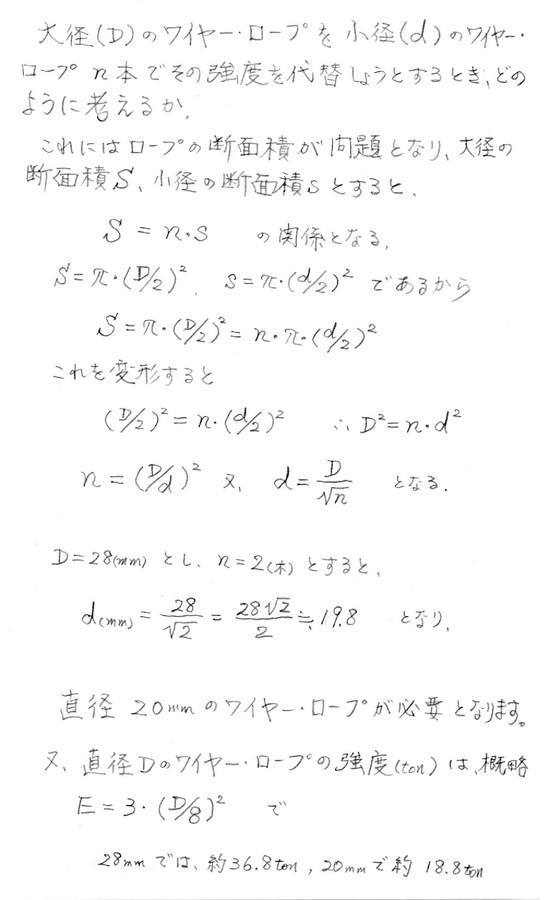 大径(D)のワイヤー・ロープを小径(d)のワイヤー・
ロープn本でその強度を代替しようとするとき、どの
ように考えるか。
これにはロープの断面積が問題となり、大径の
断面積S、小径の断面積sとすると、
S = n・s の関係となる。
S=π・(D/2)²、s=π・(d/2)² であるから
S=π・(D/2)²= n・π・(d/2)²
これを変形すると
(D/2)²= n・(d/2)² ∴ D²=n・d²
n = (D/d)² 又、d = D/√n となる.
D=28(mm) とし、n=2(本) とすると、
d(mm) = 28/√2 = 28√2/2 ≒ 19.8 となり、
直径 20mmのワイヤー・ロープが必要となります。
又、直径Dのワイヤー・ロープの強度(ton)は、概略
E = 3・(D/8)² で
28mmでは、約36.8ton , 20mmで約 18.8ton